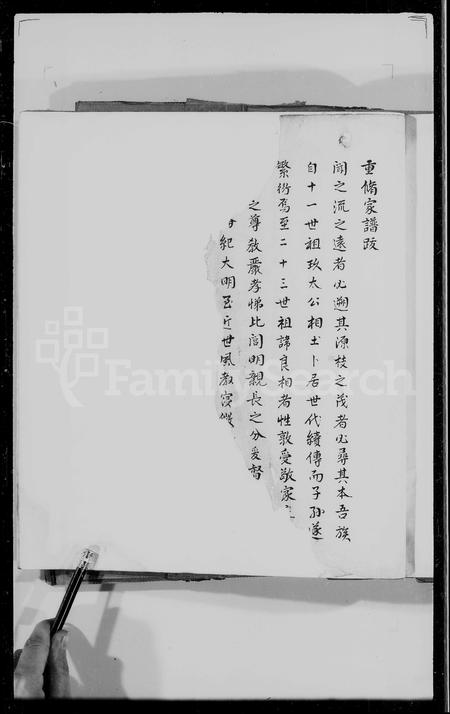 重脩家譜跋
閱之流之遠者必遡其源枝之茂者必尋其本吾族
自十一世祖玖太公相土卜居世代續傳而子孫遂
繁衍焉至二十三世祖諱良相者性敦愛敬家
之尊敎嚴孝悌比閭明親長之分爰督
紀大明至近世風教寖
FamilySearch